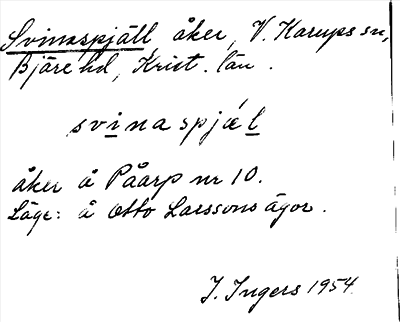 Svinaspjäll, åker, V. Karups sn,
Bjäre hd, Krist. län.
svinaspjæl
åker å Påarp nr 10.
Läge: å Otto Larssons ägor.
I. Ingers 1954.